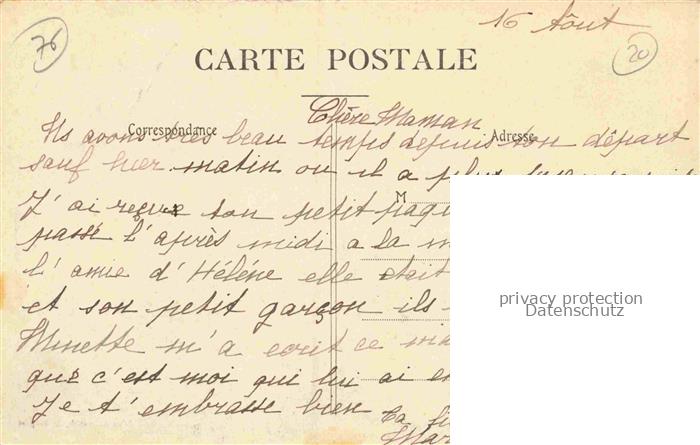 76
16 Août
20
CARTE POSTALE
Chère Maman
Correspondance
Adresse
Ns avons très beau temps depuis ton départ
sauf hier matin ou il a plut
M
J'ai reçue ton petit paqu
passé l'après midi a la m
l'amie d'Hélène elle était
et son petit garçon ils
Minette m'a ecrit ce ma
que c'est moi qui lui ai e
Je t'embrasse bien
Ta fi
Mar
privacy protection
Datenschutz